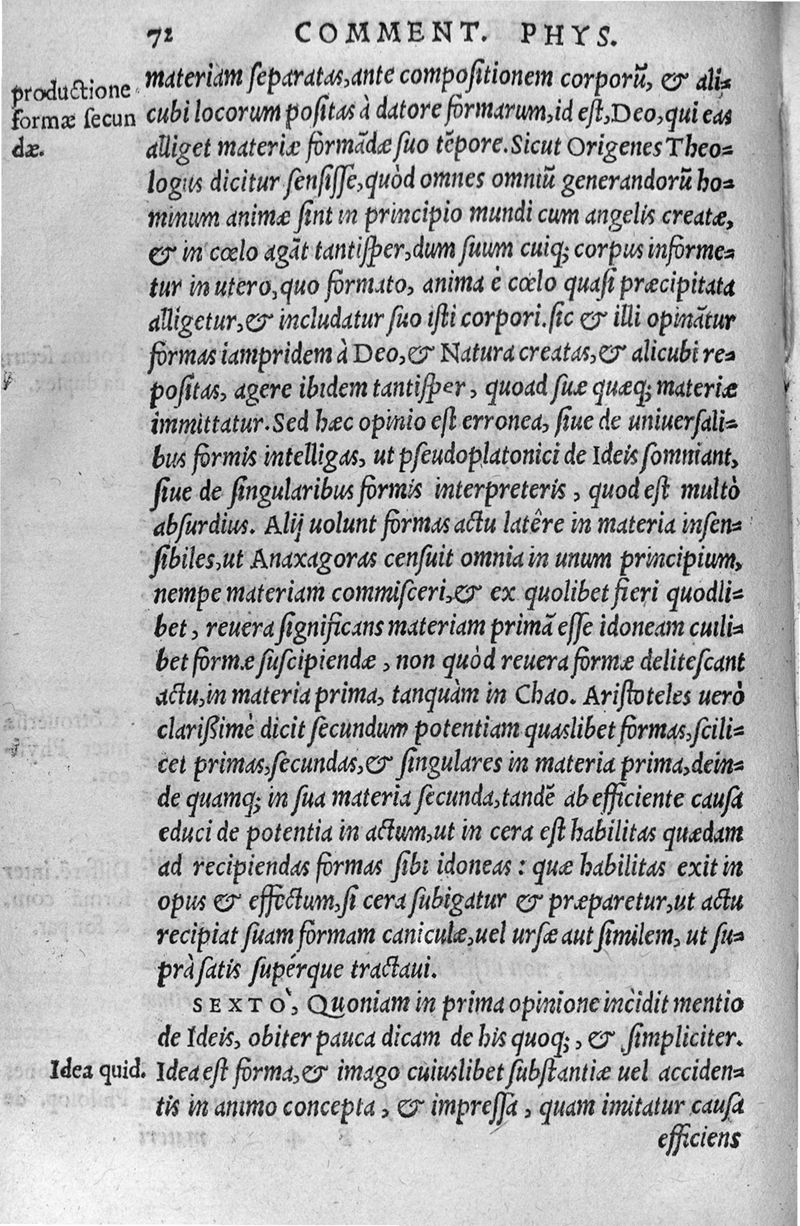 72 COMMENT. PHYS.
productione
formæ secun
dæ.
materiam separatas, ante compositionem corporū, & ali-
cubi locorum positas à datore formarum, id est, Deo, qui eas
alliget materiæ formādæ suo tēpore. Sicut Origenes Theo-
logus dicitur sensisse, quòd omnes omniū generandorū ho-
minum animæ sint in principio mundi cum angelis creatæ,
& in cœlo agāt tantisper, dum suum cuiq; corpus informe-
tur in utero, quo formato, anima è cœlo quasi præcipitata
alligetur, & includatur suo isti corpori. sic & illi opinātur
formas iampridem à Deo, & Natura creatas, & alicubi re-
positas, agere ibidem tantisper, quoad suæ quæq; materiæ
immittatur. Sed hæc opinio est erronea, siue de uniuersali-
bus formis intelligas, ut pseudoplatonici de Ideis somniant,
siue de singularibus formis interpreteris, quod est multò
absurdius. Alij uolunt formas actu latêre in materia insen-
sibiles, ut Anaxagoras censuit omnia in unum principium,
nempe materiam commisceri, & ex quolibet fieri quodli-
bet, reuera significans materiam primā esse idoneam cuili-
bet formæ suscipiendæ, non quòd reuera formæ delitescant
actu, in materia prima, tanquàm in Chao. Aristoteles uerò
clarißimè dicit secundum potentiam quaslibet formas, scili-
cet primas, secundas, & singulares in materia prima, dein-
de quamq; in sua materia secunda, tandē ab efficiente causa
educi de potentia in actum, ut in cera est habilitas quædam
ad recipiendas formas sibi idoneas: quæ habilitas exit in
opus & effectum, si cera subigatur & præparetur, ut actu
recipiat suam formam caniculæ, uel ursæ aut similem, ut su-
prà satis supérque tractaui.
SEXTO`, Quoniam in prima opinione incìdit mentio
de Ideis, obiter pauca dicam de his quoq;, & simpliciter.
Idea quid.
Idea est forma, & imago cuiuslibet substantiæ uel acciden-
tis in animo concepta, & impressa, quam imitatur causa
efficiens